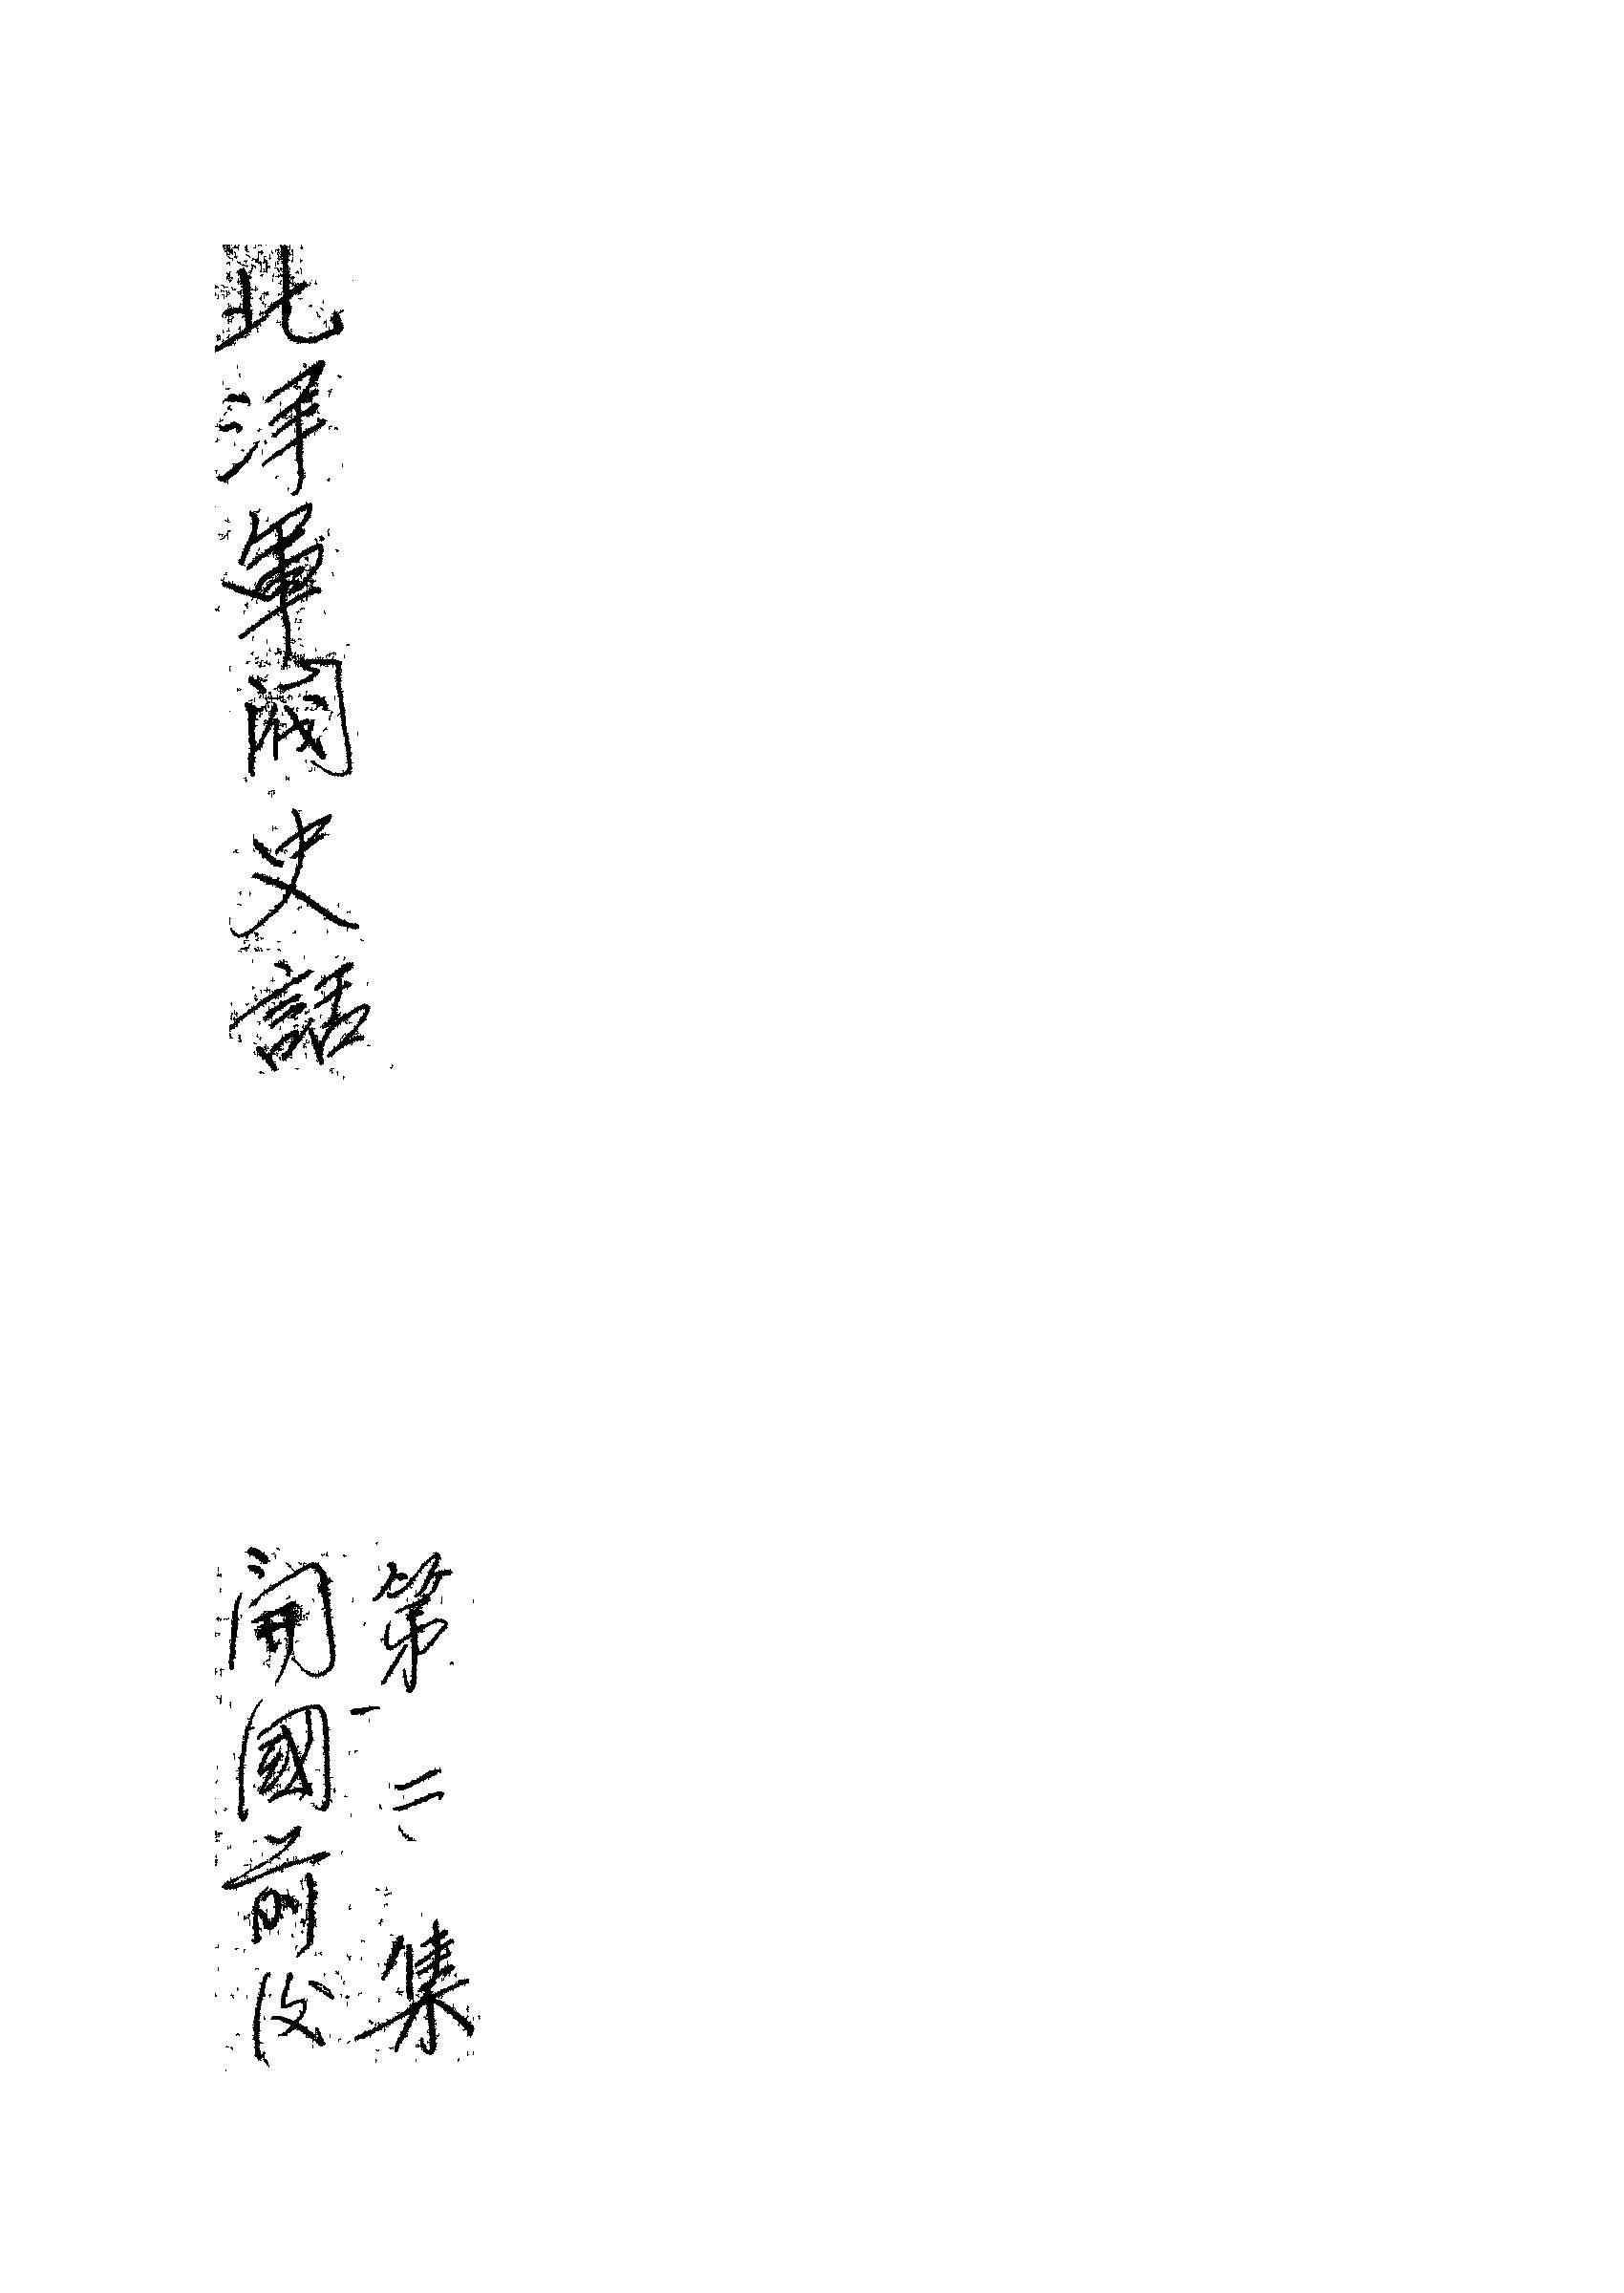 北洋軍閥史話
第二集
開國前後